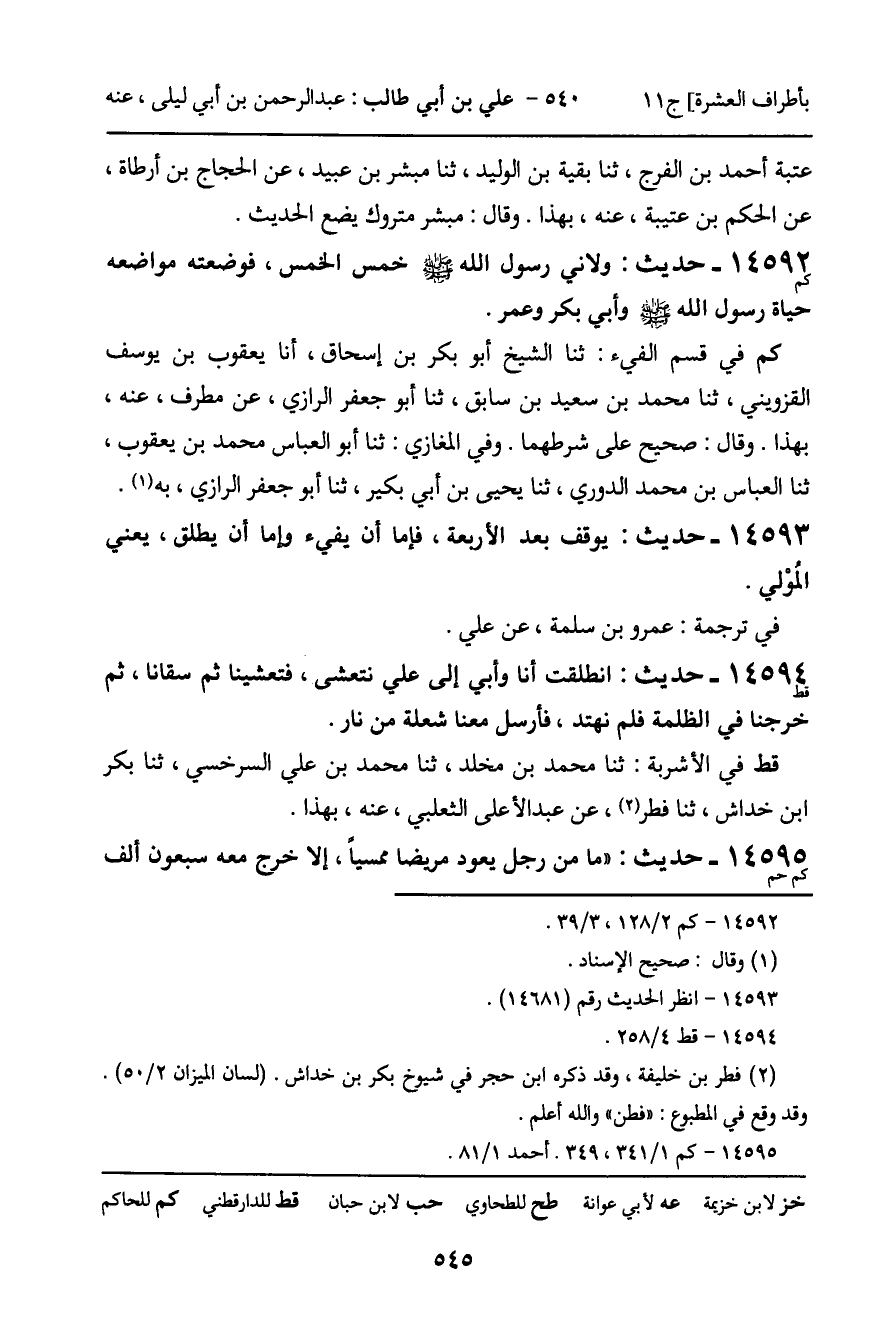 بأطراف العشرة] ج١١ ٥٤٠ - علي بن أبي طالب : عبدالرحمن بن أبي ليلى ، عنه
عتبة أحمد بن الفرج ، ثنا بقية بن الوليد ، ثنا مبشر بن عبيد ، عن الحجاج بن أرطاة ،
عن الحكم بن عتيبة ، عنه ، بهذا . وقال : مبشر متروك يضع الحديث .
١٤٥٩٢ ـ حديث : ولاني رسول الله ﷺ خمس الخمس ، فوضعته مواضعه
كم
حياة رسول الله ﷺ وأبي بكر وعمر .
كم في قسم الفيء : ثنا الشيخ أبو بكر بن إسحاق ، أنا يعقوب بن يوسف
القزويني ، ثنا محمد بن سعيد بن سابق ، ثنا أبو جعفر الرازي ، عن مطرف ، عنه ،
بهذا . وقال : صحيح على شرطهما . وفي المغازي : ثنا أبو العباس محمد بن يعقوب ،
ثنا العباس بن محمد الدوري ، ثنا يحيى بن أبي بكير ، ثنا أبو جعفر الرازي ، به(١) .
١٤٥٩٣ ـ حديث : يوقف بعد الأربعة ، فإما أن يفيء وإما أن يطلق ، يعني
المُوْلي .
في ترجمة : عمرو بن سلمة ، عن علي .
١٤٥٩٤ ـ حديث : انطلقت أنا وأبي إلى علي نتعشى ، فتعشينا ثم سقانا ، ثم
قط
خرجنا في الظلمة فلم نهتد ، فأرسل معنا شعلة من نار .
قط في الأشربة : ثنا محمد بن مخلد ، ثنا محمد بن علي السرخسي ، ثنا بكر
ابن خداش ، ثنا فطر(٢) ، عن عبدالأعلى الثعلبي ، عنه ، بهذا .
١٤٥٩٥ ـ حديث : «ما من رجل يعود مريضا ممسياً ، إلا خرج معه سبعون ألف
كم حم
١٤٥٩٢ - كم ١٢٨/٢ ، ٣٩/٣ .
(١) وقال : صحيح الإسناد .
١٤٥٩٣ - انظر الحديث رقم (١٤٦٨١) .
١٤٥٩٤ - قط ٢٥٨/٤ .
(٢) فطر بن خليفة ، وقد ذكره ابن حجر في شيوخ بكر بن خداش . (لسان الميزان ٥٠/٢) .
وقد وقع في المطبوع : «فطن» والله أعلم .
١٤٥٩٥ - كم ٣٤١/١ ، ٣٤٩ . أحمد ٨١/١ .
خز لابن خزيمة عه لأبي عوانة طح للطحاوي حب لابن حبان قط للدارقطني كم للحاكم
٥٤٥